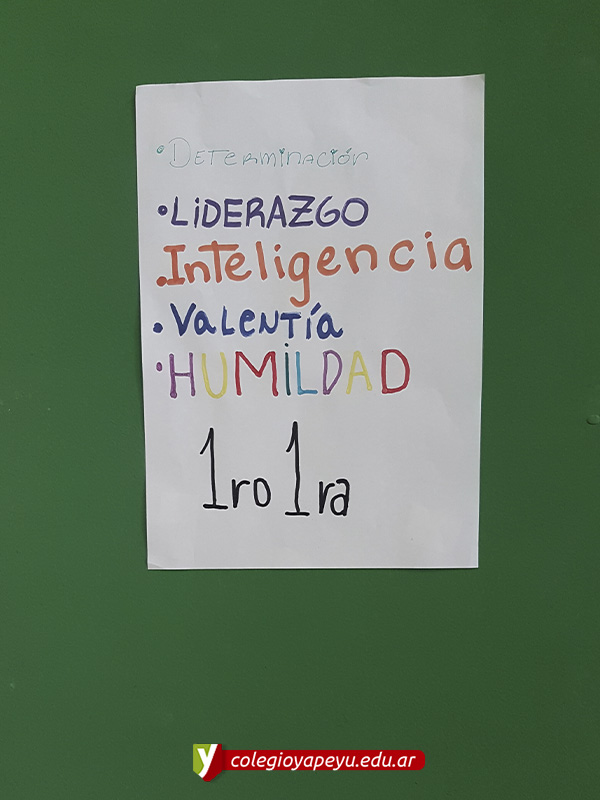 • Determinación
• LiDERAZGO
• Inteligencia
• Valentía
• HUMiLDAD
1ro 1ra
y colegioyapeyu.edu.ar